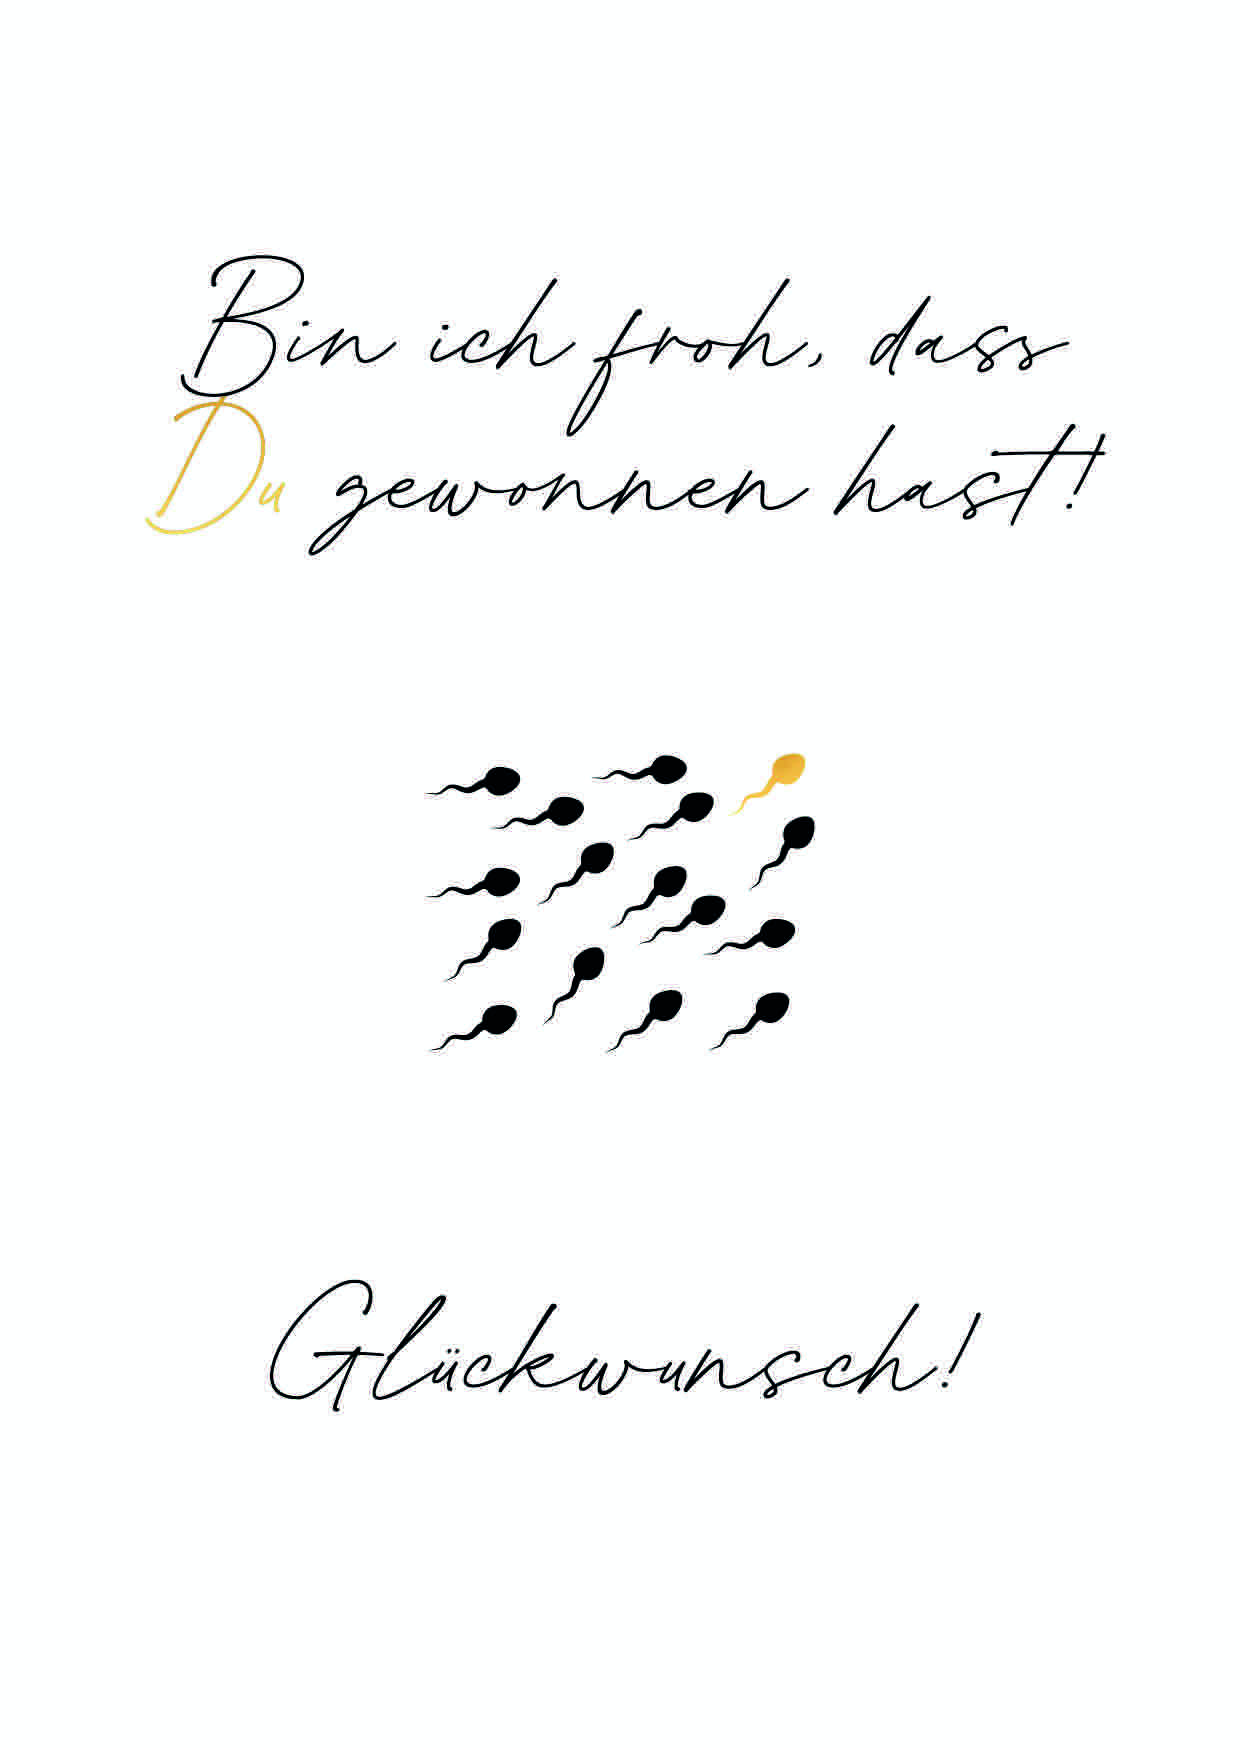 Bin ich froh, dass
Du gewonnen hast!
Glückwunsch!